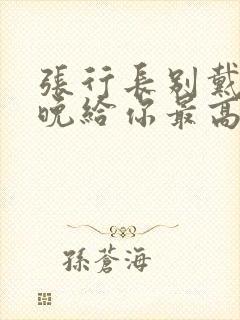 張行長別戴
晚給你最高
孫蒼海